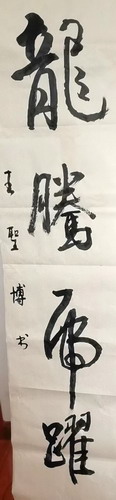 龍騰虎躍
王聖博书